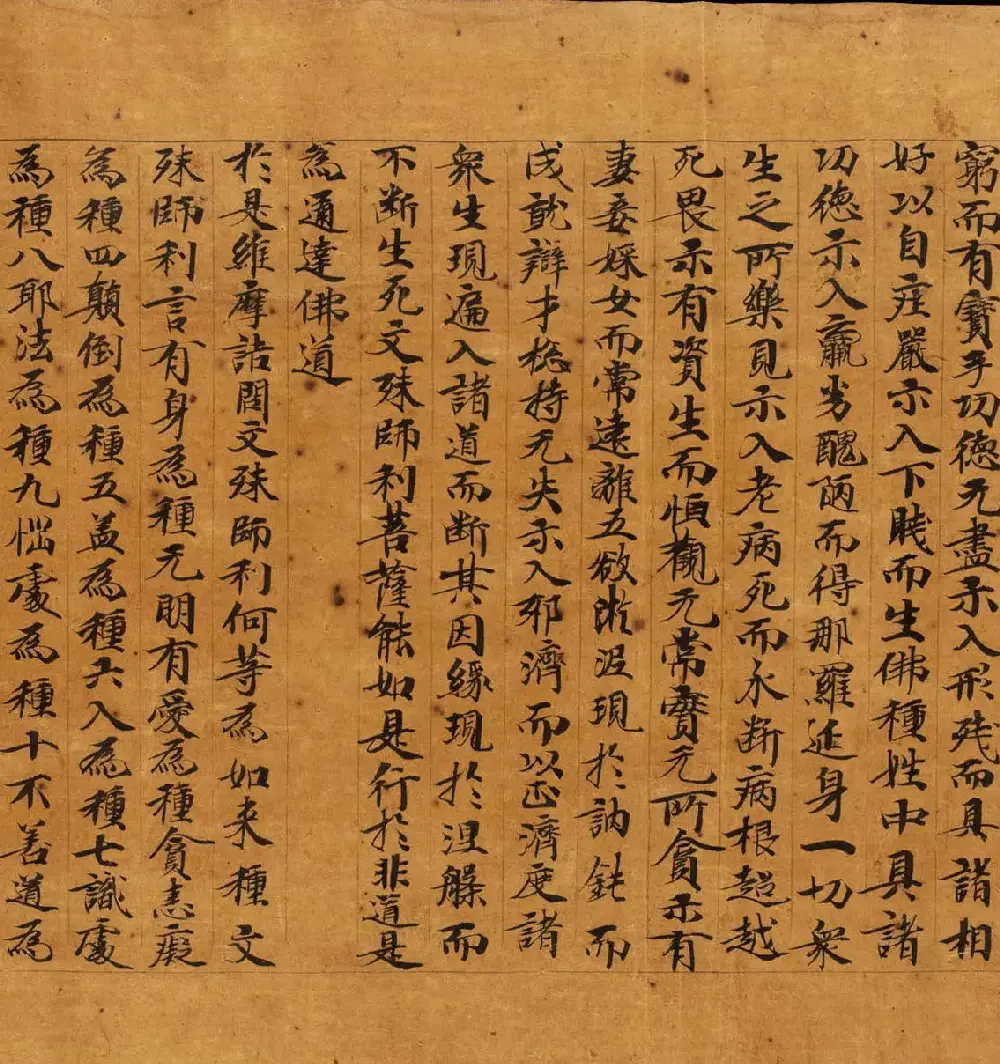 窮而有寶手功德无盡示入形残而具諸相
好以自莊嚴示入下賎而生佛種姓中具諸
功德示入羸劣醜陋而得那羅延身一切衆
生之所樂見示入老病死而永断病根超越
死畏示有資生而恒觀无常實无所貪示有
妻妾婇女而常遠離五欲淤泥現於訥鈍而
成就辯才揔持无失示入邪濟而以正濟度諸
衆生現遍入諸道而断其因緣現於涅槃而
不断生死文殊師利菩薩能如是行於非道是
為通達佛道
於是維摩詰問文殊師利何等為如来種文
殊師利言有身為種无明有愛為種貪恚癡
為種四顛倒為種五盖為種六入為種七識處
為種八耶法為種九惱處為種十不善道為